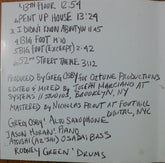 13TH FLOOR 12:54
2 PENT UP HOUSE 13:24
3 I DIDN'T KNOW ABOUT YOU 11:45
4 BIG FOOT 14:10
5 BIG FOOT (EXCERPT) 2:42
6 52ND STREET THEME 3:12
PRODUCED BY GREG OSBY FOR OZTONE PRODUCTIONS
EDITED & MIXED BY JOSEPH MARCIANO AT
SYSTEMS II STUDIOS, BROOKLYN, NY
MASTERED BY NICHOLAS PROUT AT FOOTHILL
DIGITAL, NYC
GREG OSBY: ALTO SAXOPHONE
JASON MORAN: PIANO
ATSUSHI (AZ'SHI) OSADA: BASS
RODNEY GREEN: DRUMS